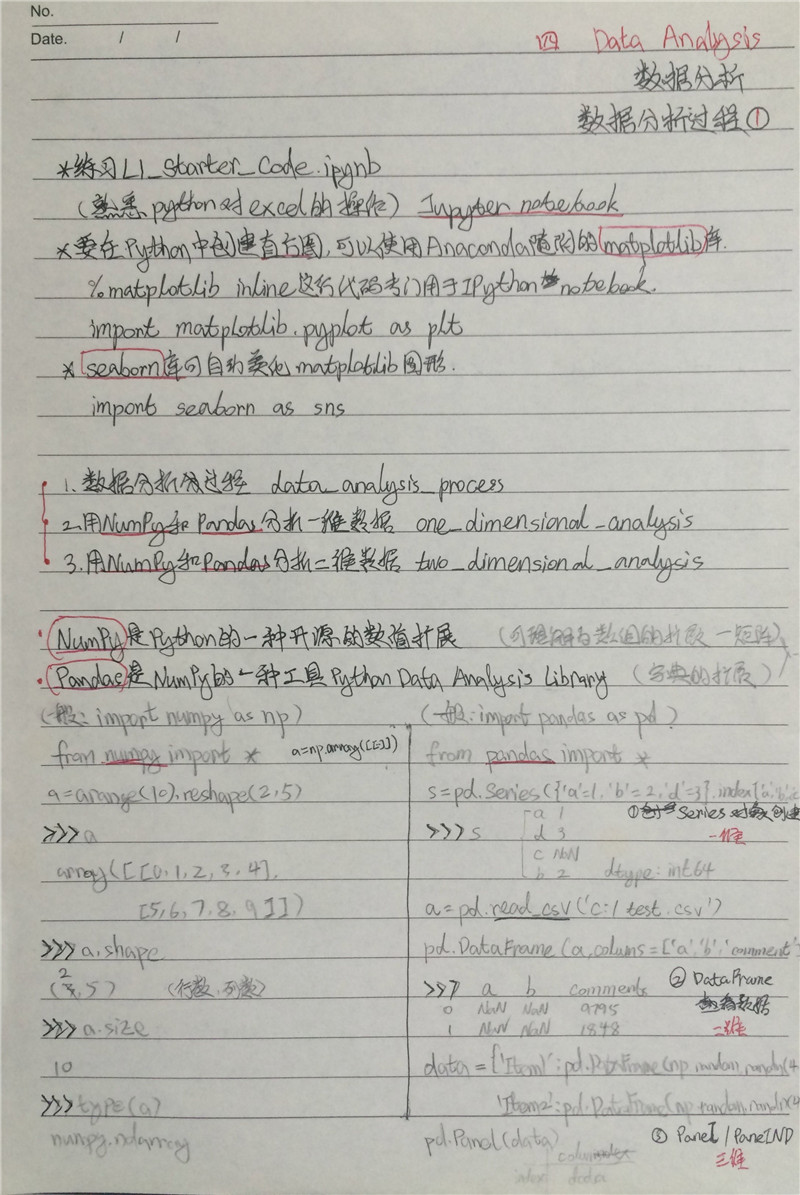 No.
Date. / /
四 Data Analysis
数据分析
数据分析过程①
*练习L1_Starter_Code.ipynb
(熟悉python对excel的操作) Jupyter notebook
*要在Python中创建直方图,可以使用Anaconda随附的matplotlib库.
%matplotlib inline 这行代码专门用于IPython notebook.
import matplotlib.pyplot as plt
* seaborn库可自动美化matplotlib图形.
import seaborn as sns
1.数据分析过程 data_analysis_process
2.用NumPy和Pandas分析一维数据 one_dimensional_analysis
3.用NumPy和Pandas分析二维数据 two_dimensional_analysis
·NumPy是Python的一种开源的数值扩展 (可理解为数组的扩展—矩阵)
·Pandas是NumPy的一种工具Python Data Analysis Library (字典的扩展)
(一般: import numpy as np)
from numpy import * a=np.array([[·]])
a=arange(10).reshape(2,5)
>>>a
array([[0,1,2,3,4],
[5,6,7,8,9]])
>>>a.shape
(2,5) (行数,列数)
>>>a.size
10
>>>type(a)
numpy.ndarray
(一般: import pandas as pd)
from pandas import *
s=pd.Series({'a'=1,'b'=2,'d'=3},index['a','b',c
① Series 对象创建
>>>s a 1
d 3 一维
c NaN
b 2 dtype: int64
a=pd.read_csv('c:/test.csv')
pd.DataFrame(a,colums=['a','b','comment'
>>> a b comments ② DataFrame
0 NaN NaN 9795
1 NaN NaN 1848 二维
data={'Item1':pd.DataFrame(np.random.randn(4
'Item2':pd.DataFrame(np.random.randn(4
pd.Panel(data) ③ Panel/PanelND
三维
index data